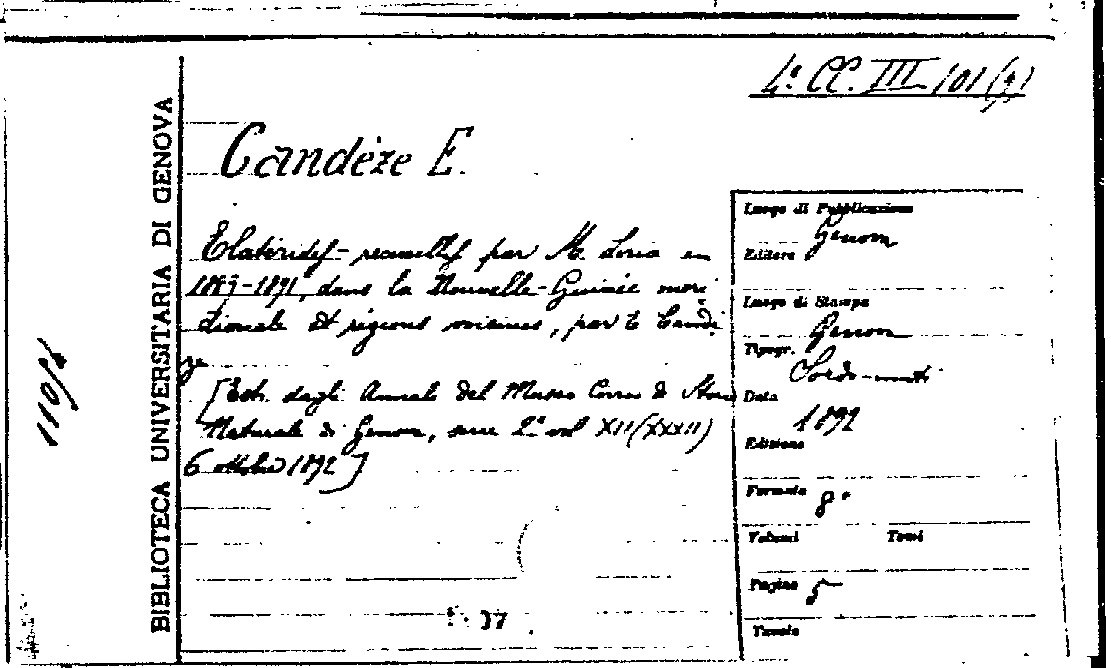 4° CC. III 101 (9)
BIBLIOTECA UNIVERSITARIA DI GENOVA
110/2
Candèze E.
Elatérides recueillis par M. Loria en
1889-1891, dans la Nouvelle-Guinée meri
dionale et régions voisines, par E. Candè
ze
[Estr. dagli Annali del Museo Civico di Storia
Naturale di Genova, serie 2ª vol XII (XXXII)
6 ottobre 1892]
37
Luogo di Pubblicazione
Genova
Editore
Luogo di Stampa
Genova
Tipogr.
Sordo-muti
Data
1892
Edizione
Formato 8°
Volumi Tomi
Pagine 5
Tavole